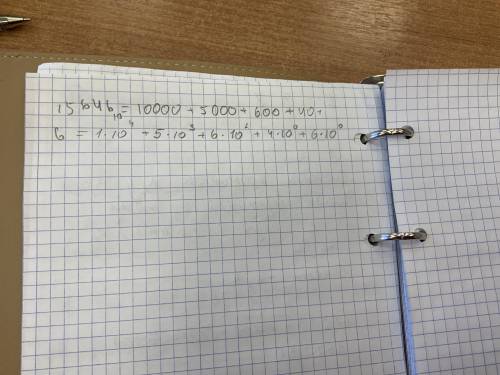 15646₁₀ = 10000 + 5000 + 600 + 40 +
6 = 1·10⁴ + 5·10³ + 6·10² + 4·10⁰ + 6·10⁰